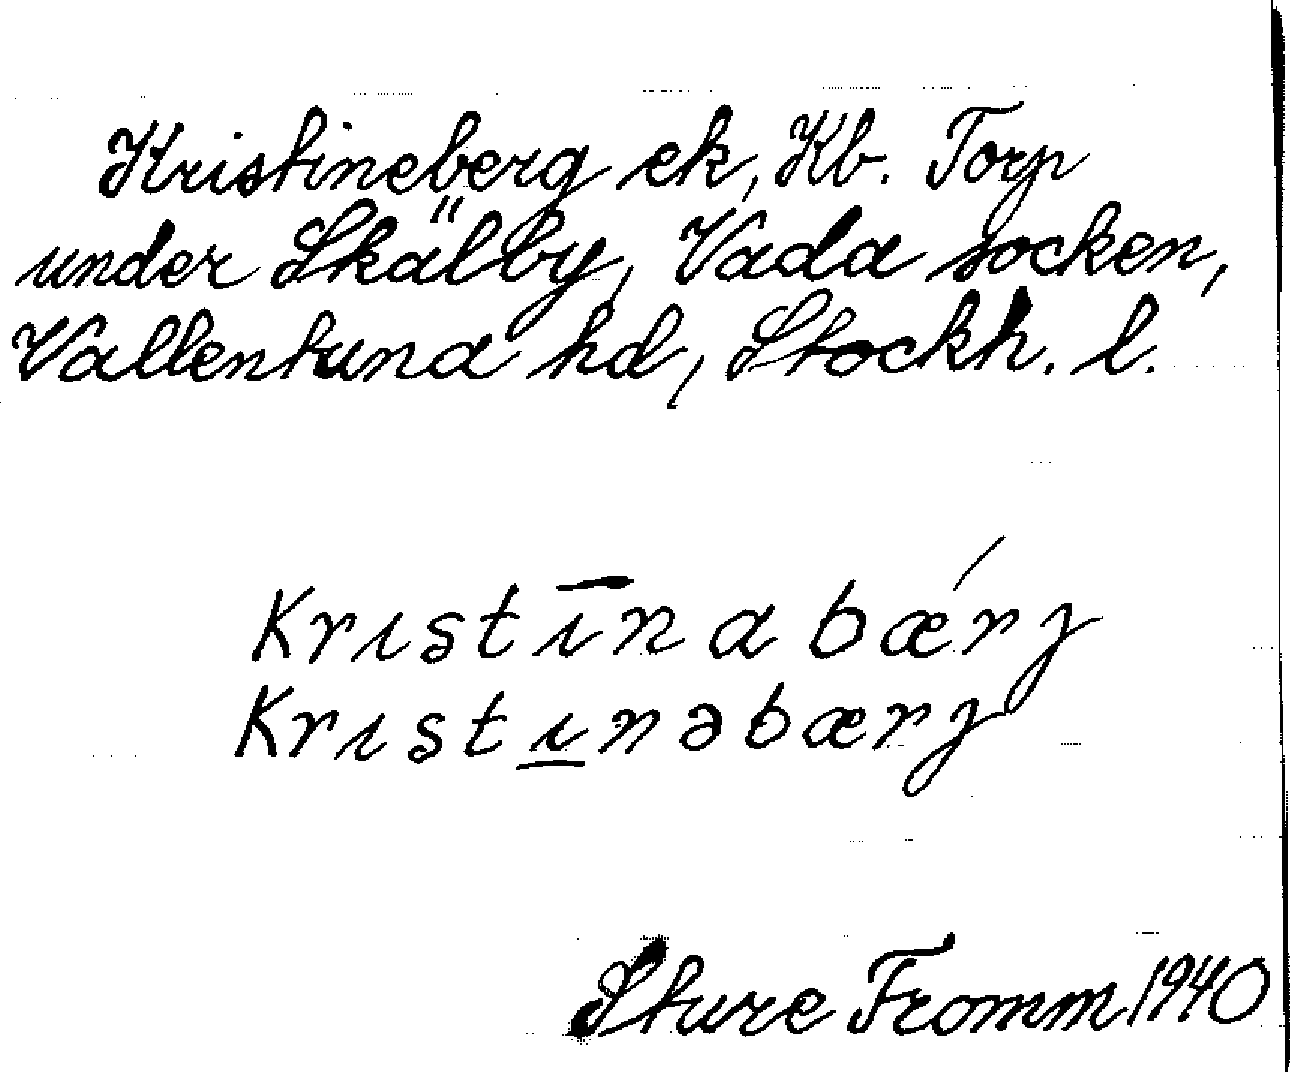 Kristineberg ek, Kb. Torp
under Skälby, Vada socken,
Vallentuna hd, Stockh. l.
Krıstı̄nabærȷ́
Krıstı̲nəbærȷ
Sture Fromm 1940